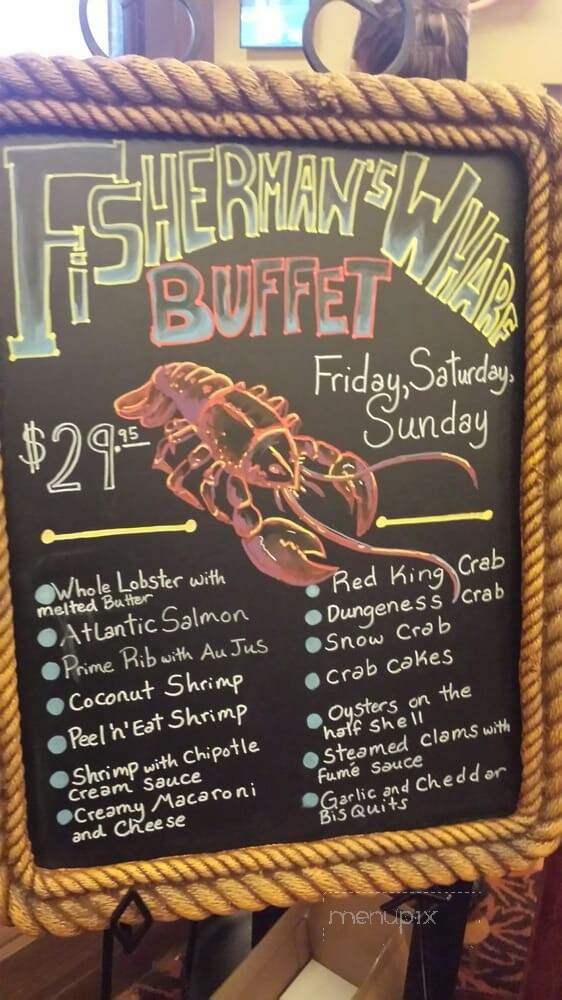 FiSHERMAN'S WHARF
BUFFET
Friday, Saturday,
Sunday
$29.95
Whole Lobster with
melted Butter
Atlantic Salmon
Prime Rib with Au Jus
Coconut Shrimp
Peel 'n' Eat Shrimp
Shrimp with Chipotle
cream sauce
Creamy Macaroni
and Cheese
Red King Crab
Dungeness Crab
Snow Crab
Crab cakes
Oysters on the
half shell
Steamed Clams with
fumé sauce
Garlic and Cheddar
BisQuits
menupix